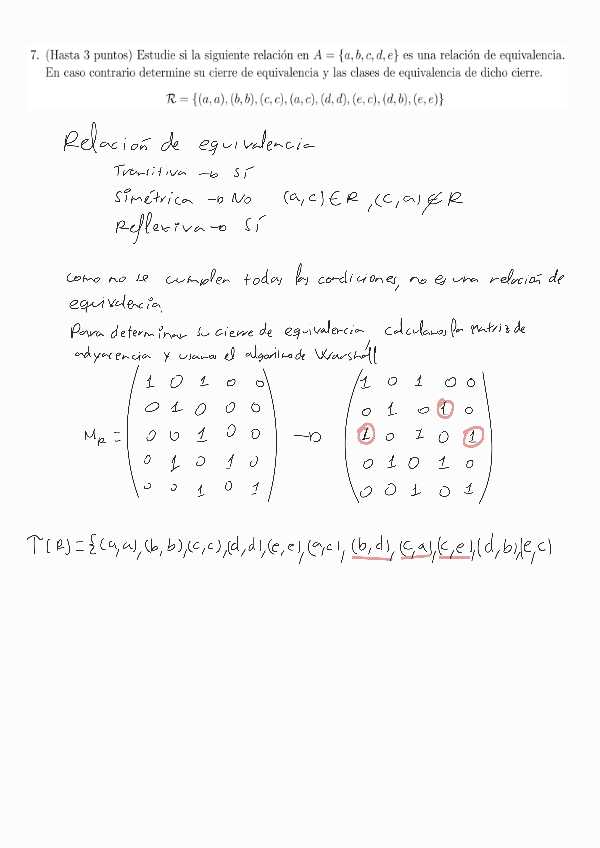 7. (Hasta 3 puntos) Estudie si la siguiente relación en A = {a, b, c, d, e} es una relación de equivalencia.
En caso contrario determine su cierre de equivalencia y las clases de equivalencia de dicho cierre.
R = {(a, a), (b, b), (c, c), (a, c), (d, d), (e, c), (d, b), (e, e)}
Relación de equivalencia
Transitiva → Sí
Simétrica → No (a,c) ∈ R, (c,a) ∉ R
Reflexiva → Sí
como no se cumplen todas las condiciones, no es una relación de
equivalencia.
Para determinar su cierre de equivalencia, calculamos la matriz de
adyacencia y usamos el algoritmo de Warshall
1 0 1 0 0 1 0 1 0 0
0 1 0 0 0 0 1 0 1 0
M_R = 0 0 1 0 0 → 1 0 1 0 1
0 1 0 1 0 0 1 0 1 0
0 0 1 0 1 0 0 1 0 1
T(R) = {(a,a), (b,b), (c,c), (d,d), (e,e), (a,c), (b,d), (c,a), (c,e), (d,b), (e,c)